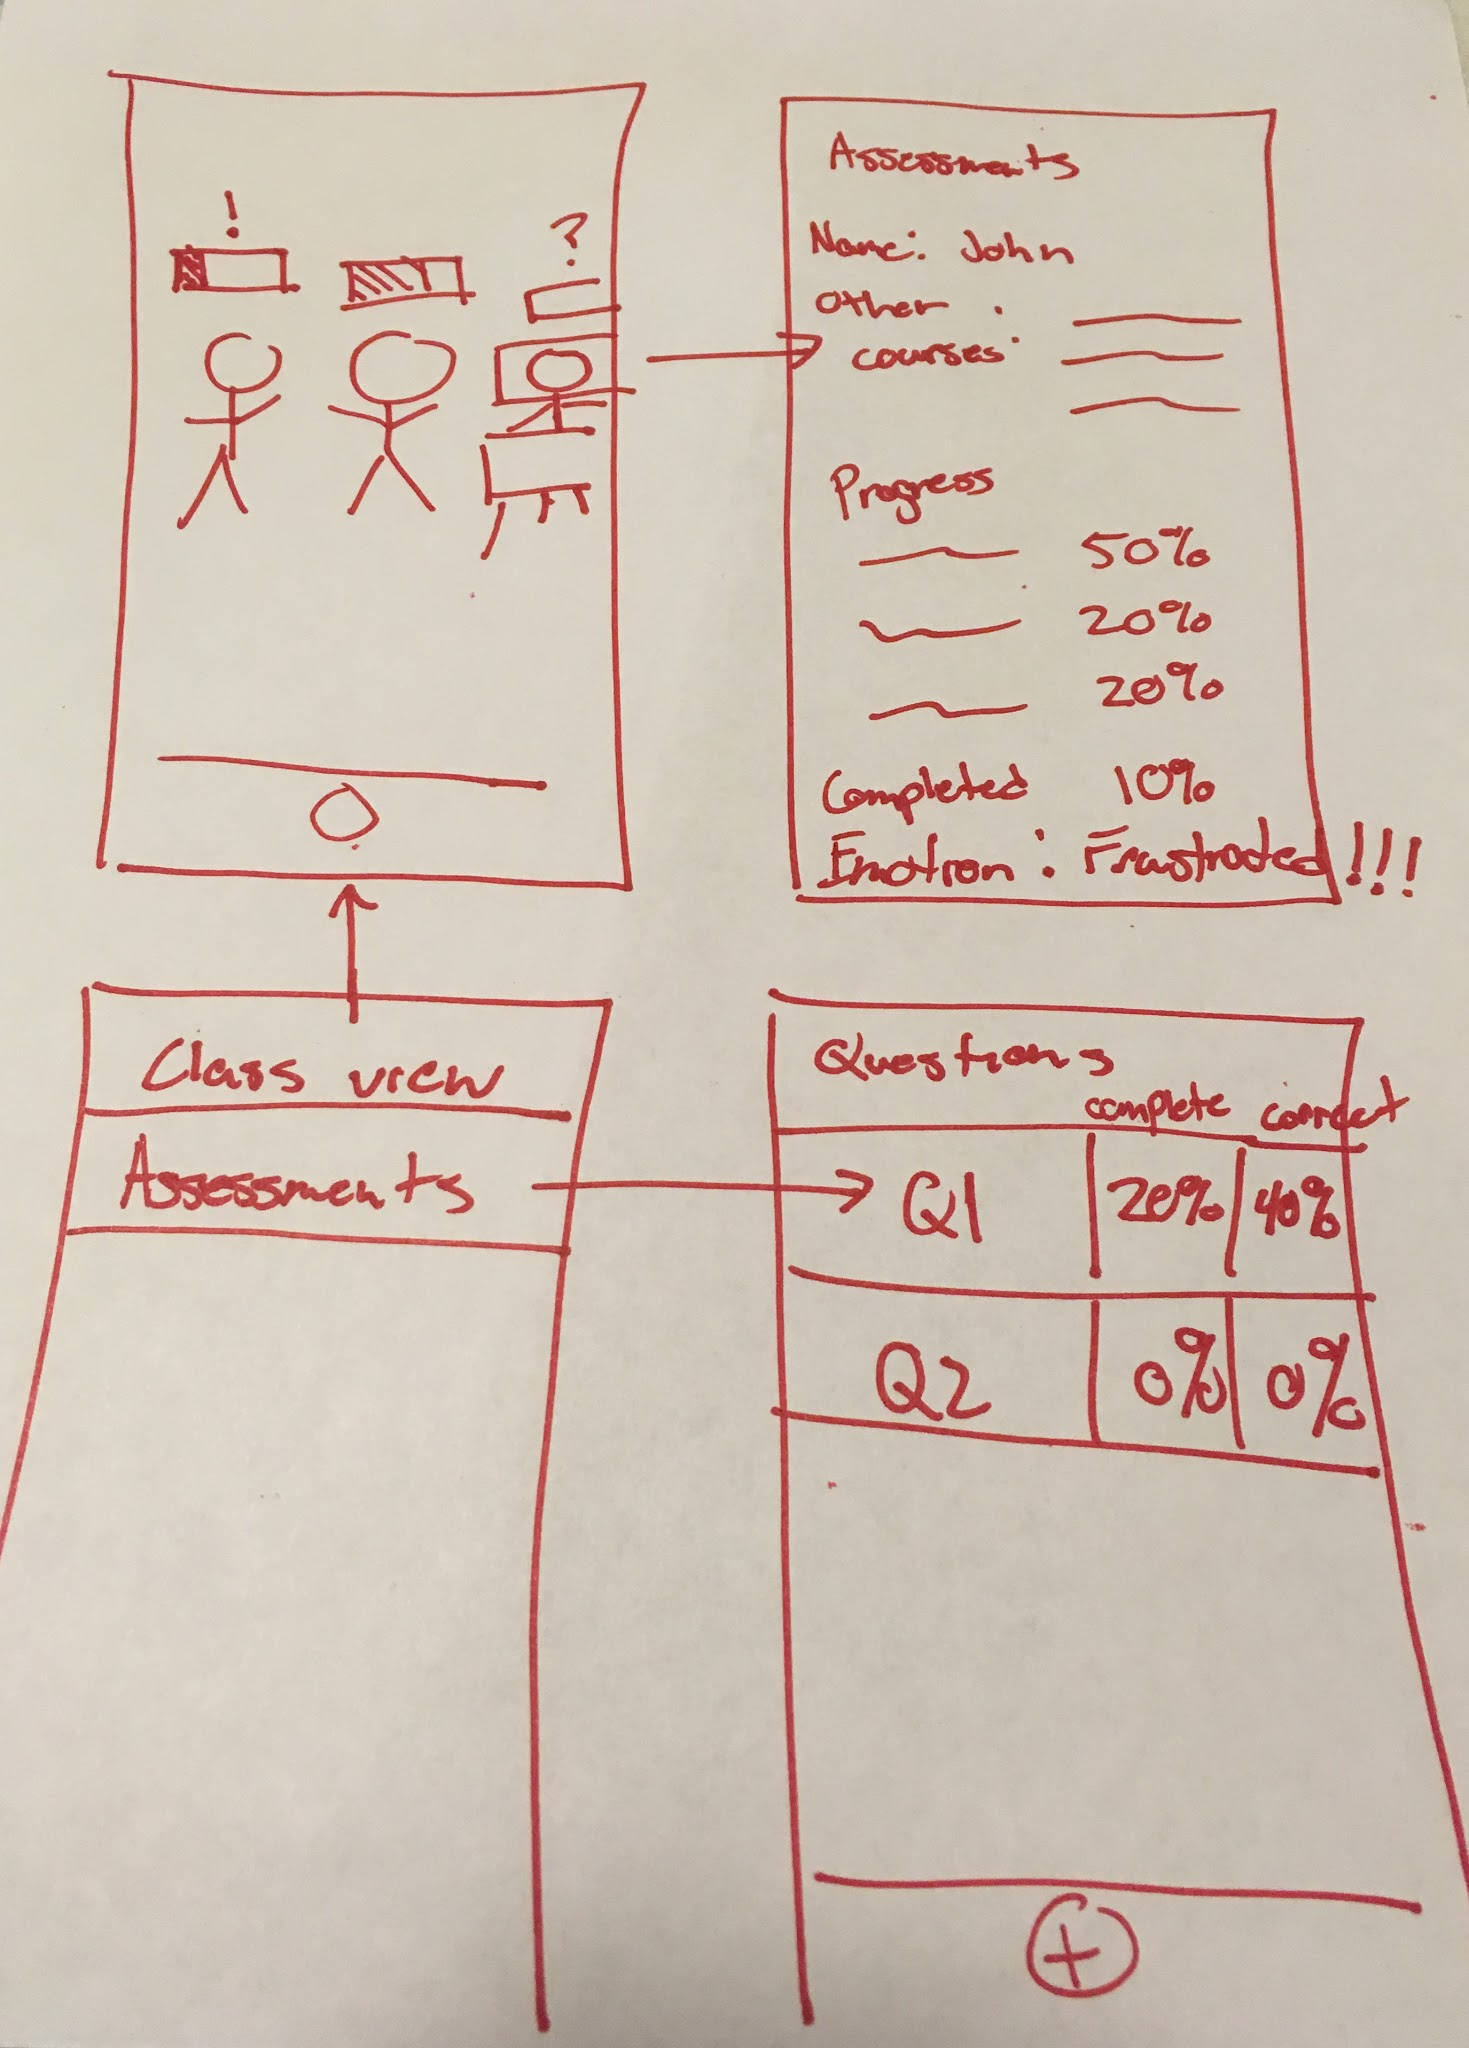 !
?
Assessments
Name: John
Other :
courses
Progress
50%
20%
20%
Completed 10%
Emotion: Frustrated!!!
Class view
Assessments
Questions
complete correct
Q1 20% 40%
Q2 0% 0%
+